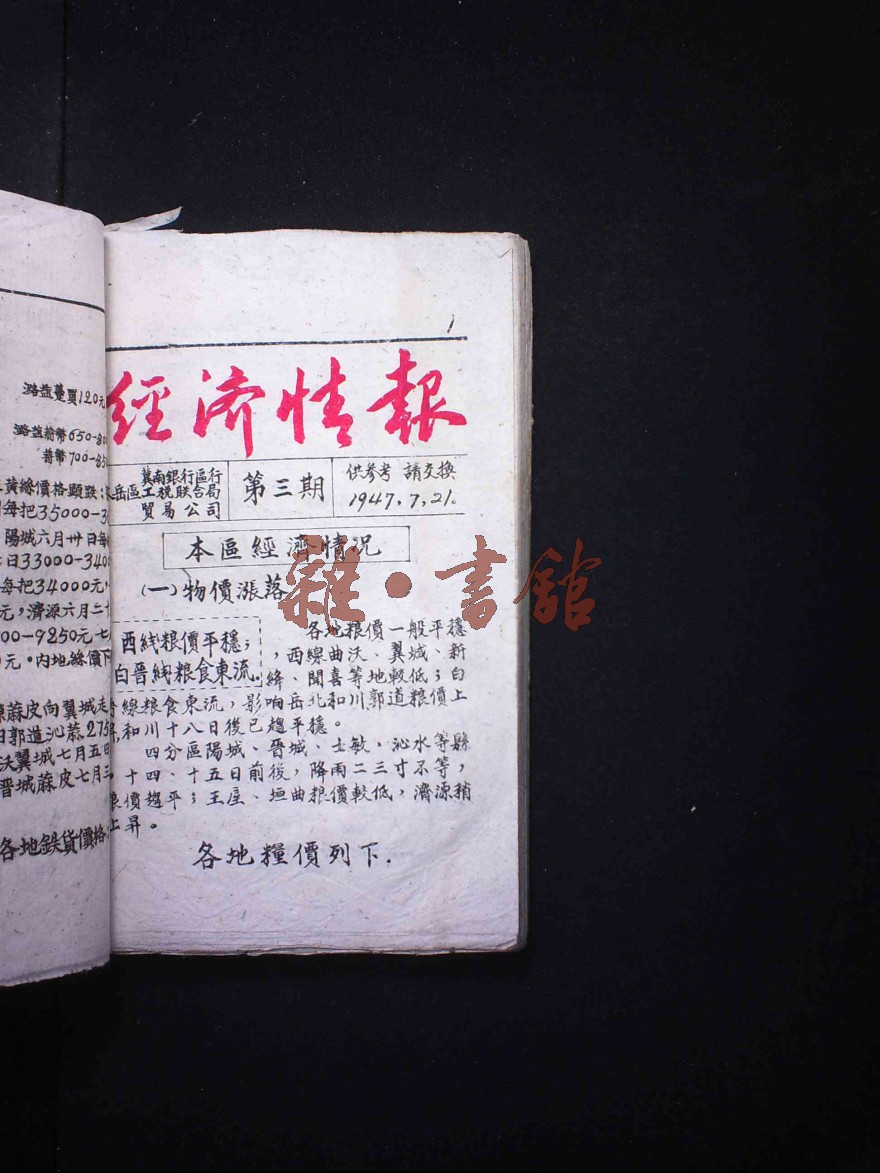 潞盐躉買120元
潞盐蔚幣650-80
蔚幣700-85
黃絲價格頭跌
每把35000-3
陽城六月卅日每
日33000-340
每把34000元,
元,濟源六月二十
00-9250元七
元。内地絲價下
蔴皮向翼城走
日郭道沁蔴275
沃翼城七月五日
晋城蔴皮七月三
各地鉄貨價格
1
經濟情報
冀南銀行區行
岳區工稅联合局
貿易公司
第三期
供参考 請交換
1947.7.21.
本區經濟情況
(一)物價漲落
西线粮價平穩;
白晋线粮食東流
各地粮價一般平穩
,西線曲沃、翼城、新
絳、聞喜等地較低;白
晉線粮食東流,影响岳北和川郭道粮價上
昇,和川十八日後已趨平穩。
四分區陽城、晉城、士敏,沁水等縣
,十四、十五日前後,降雨二三寸不等,
粮價趨平;王屋、垣曲粮價較低,濟源稍
上昇。
各地糧價列下.
雜·書館